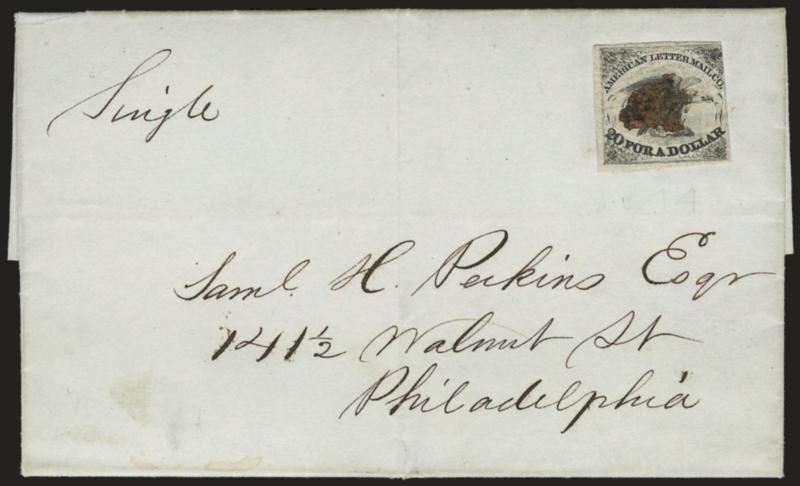 Single
AMERICAN LETTER MAIL CO.
20 FOR A DOLLAR
Saml. H. Perkins Esqr
141½ Walnut St
Philadelphia